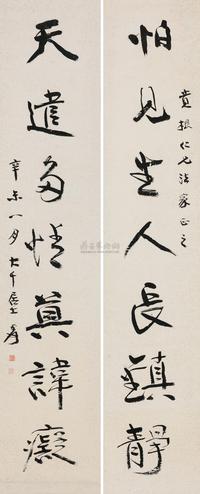 怕見生人長鎮靜
賁振仁兄法家正之
天遣多情莫諱癡
辛未一月大千居士爰